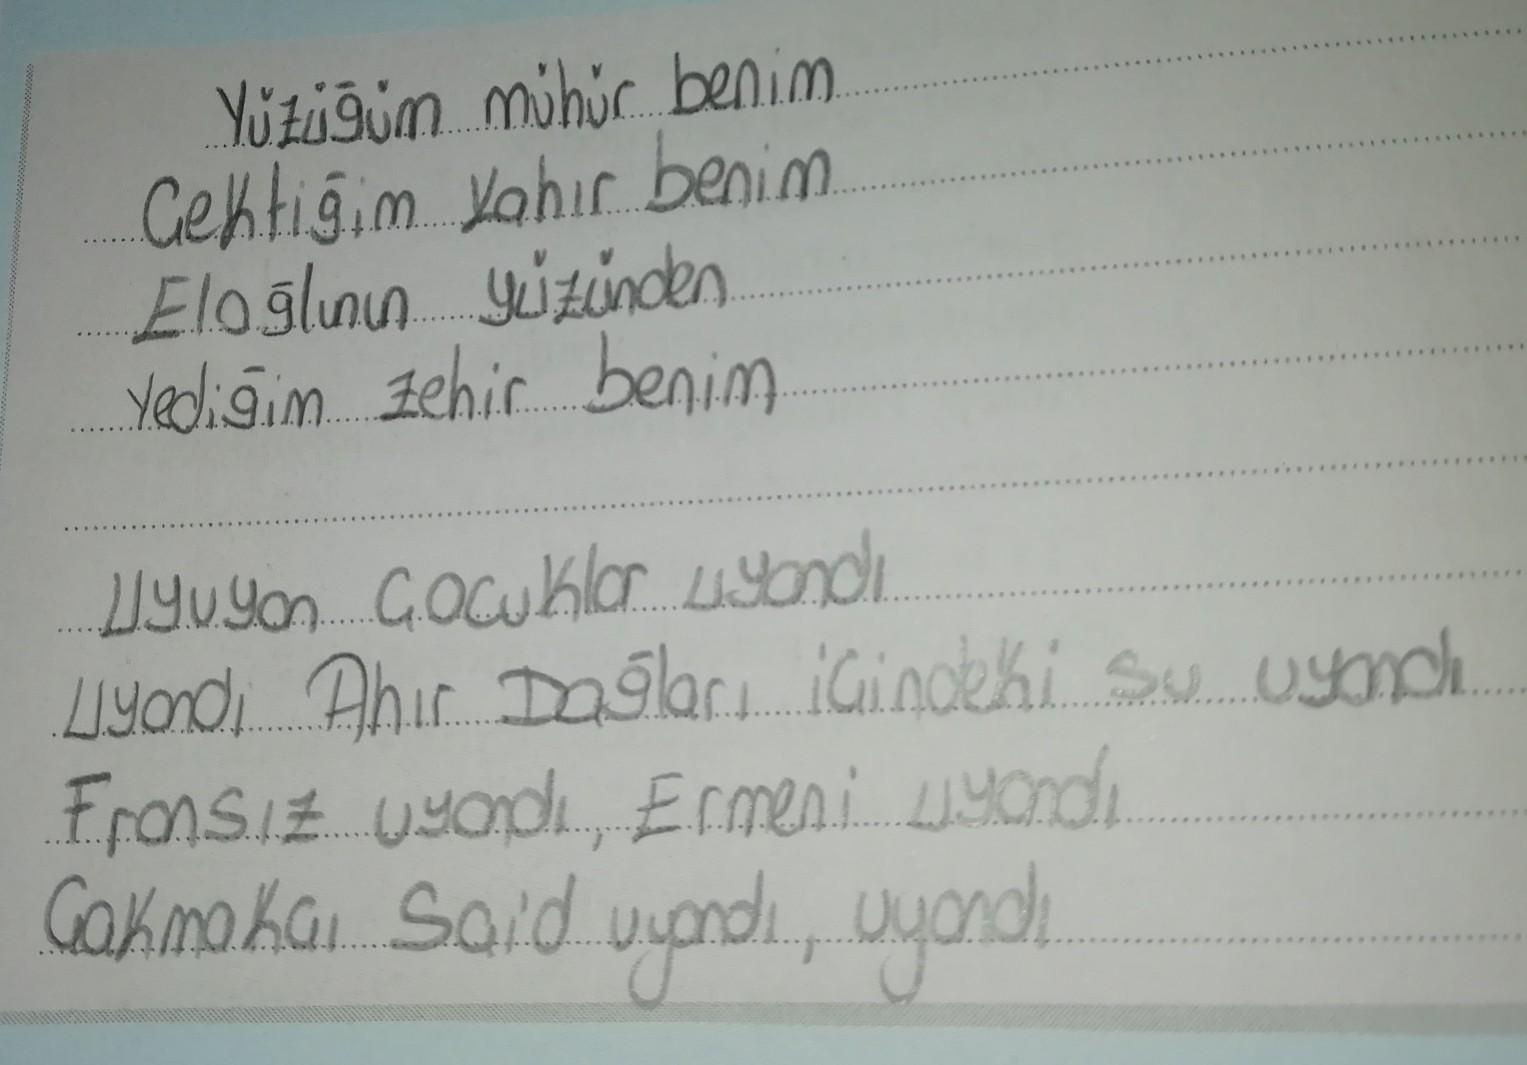 Yüzüğüm mühür benim
Çektiğim kahır benim
Eloğlunun yüzünden
Yediğim zehir benim
Uyuyan Çocuklar uyandı
Uyandı Ahır Dağları içindeki su uyandı
Fransız uyandı, Ermeni uyandı
Çakmakçı Said uyandı, uyandı